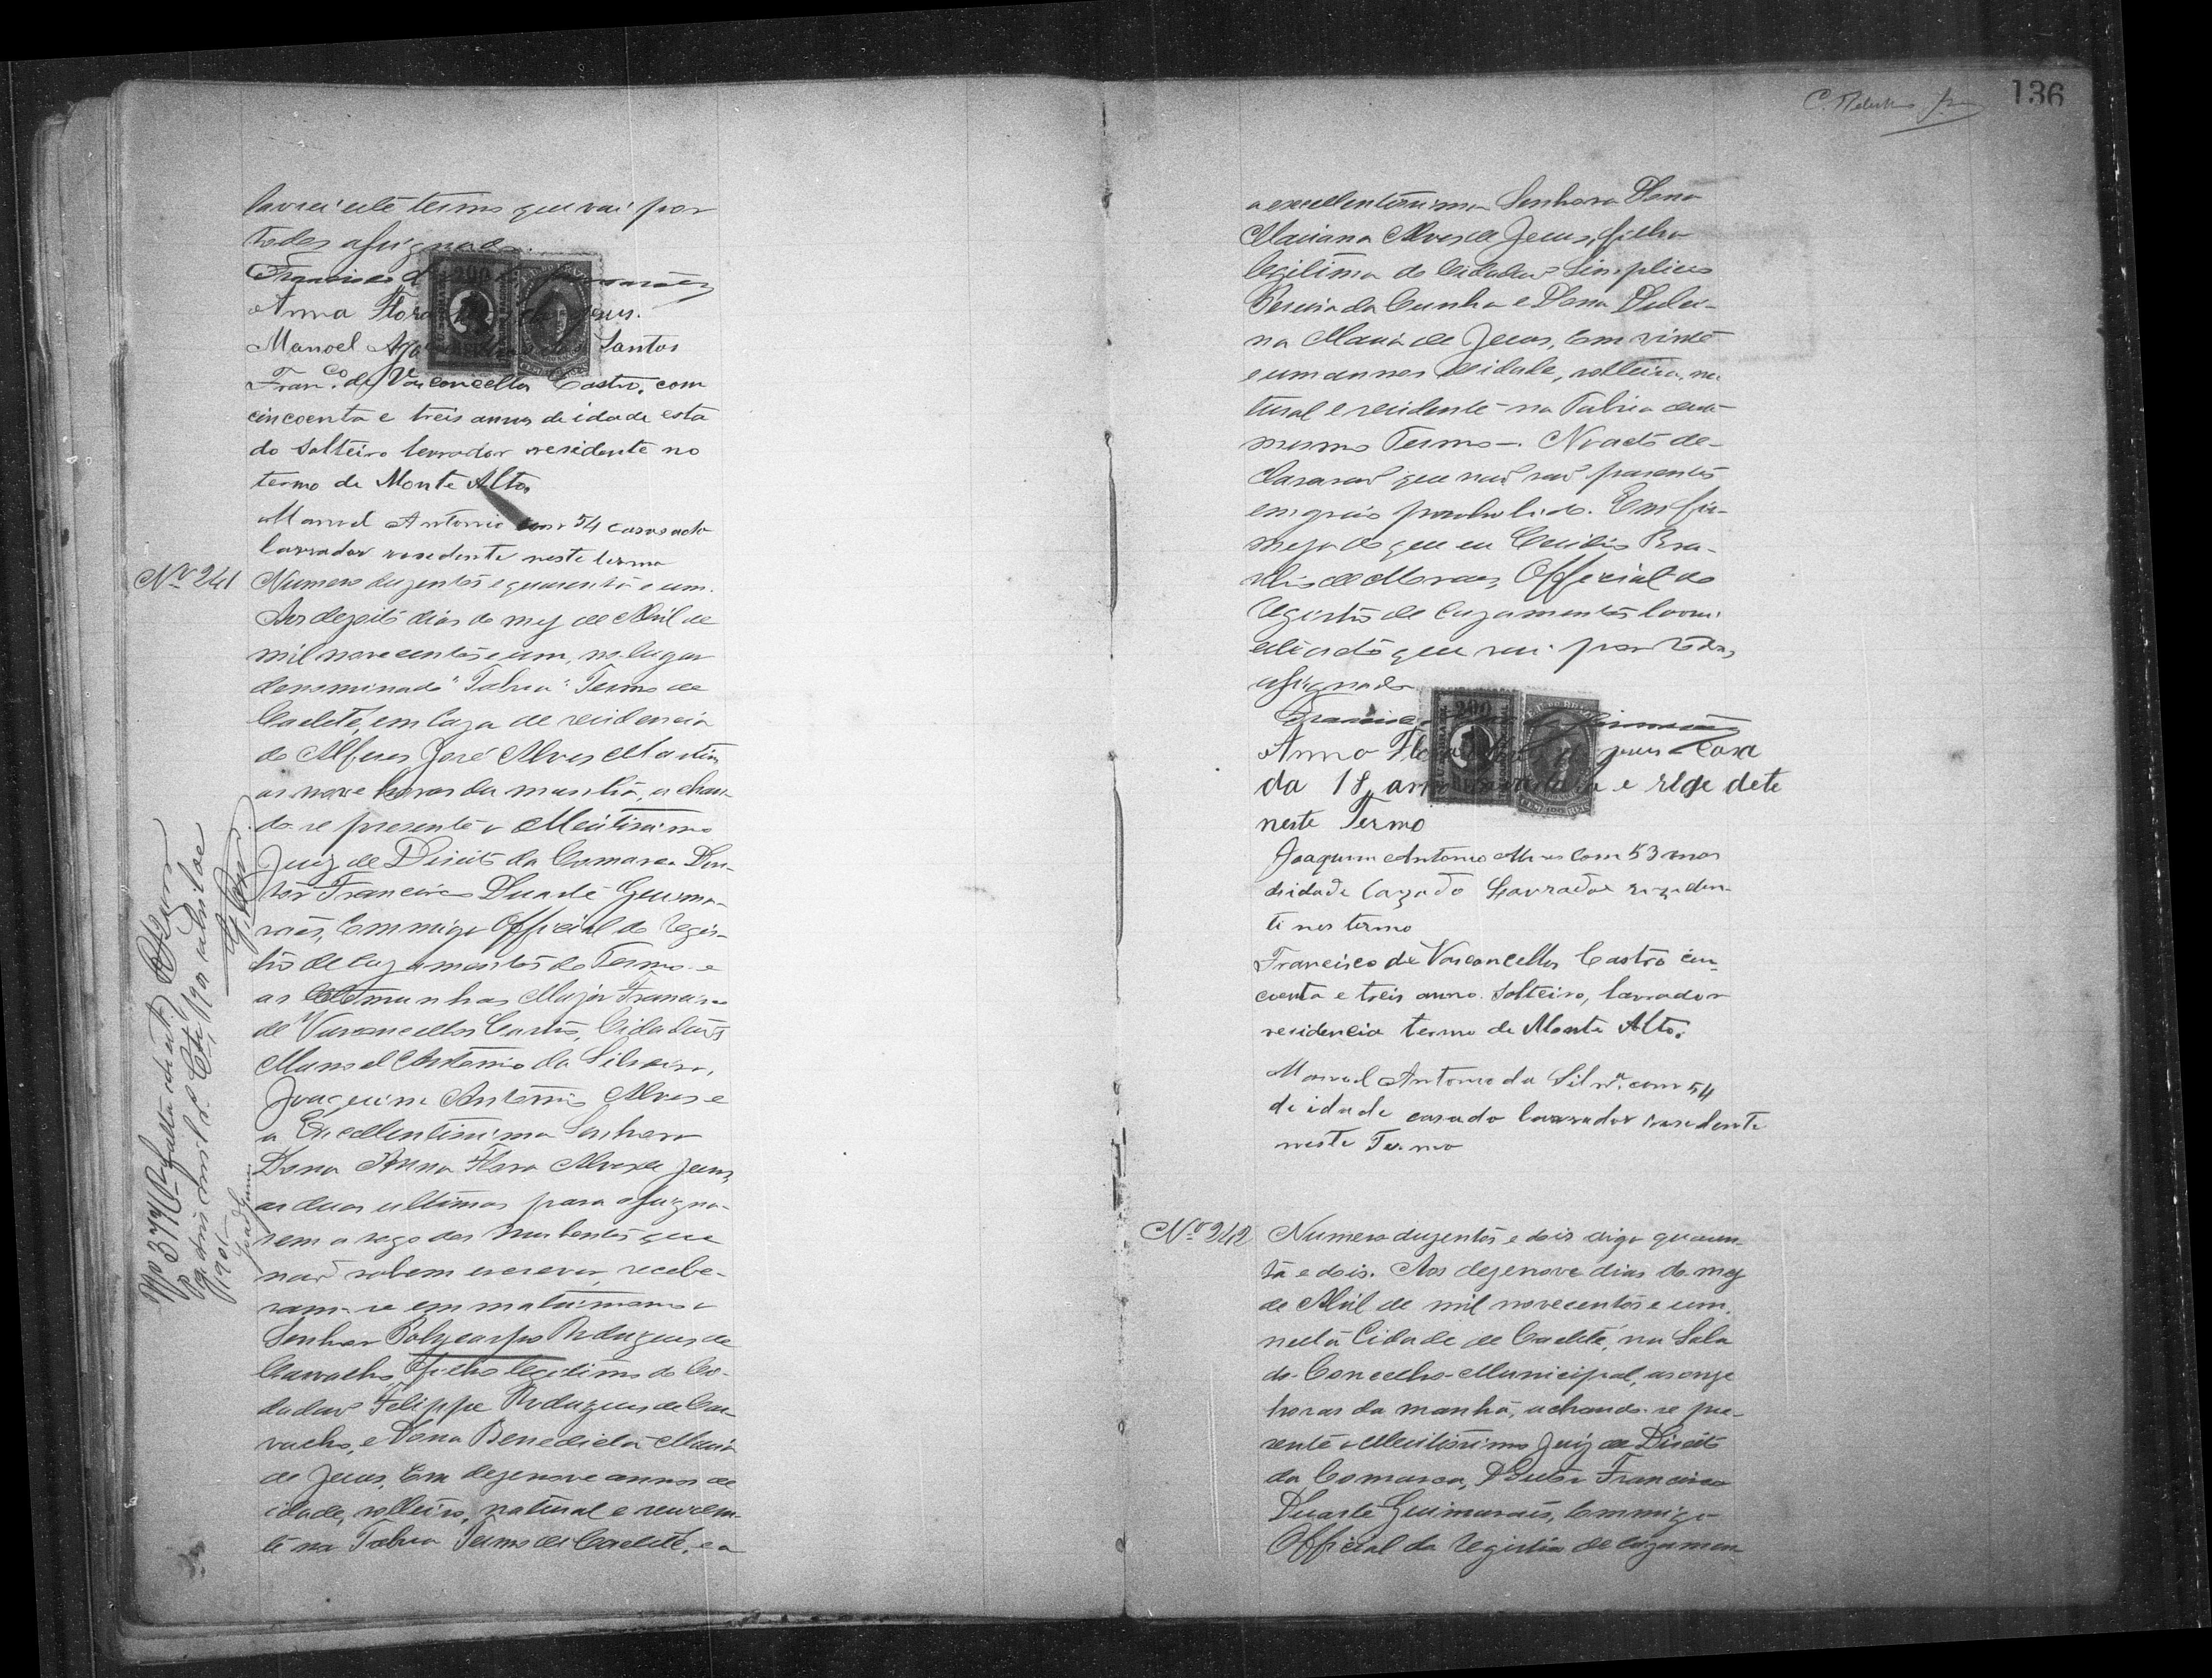 lavrei este termo que vai por
todos assignado.
Francisco Guimarães
Anna Flora de Jesus.
Manoel Santos
Fran.co de Vasconcellos Castro, com
cincoenta e treis annos de idade esta
do Solteiro lavrador residente no
termo de Monte Alto,
Manoel Antonio com 54 casado
lavrador resedente neste termo
Nº 241 Numero duzentos e quarenta e um.
Aos dezoito dias do mez de Abril de
mil novecentos e um, no lugar
denominado "Tabua" Termo de
Caeteté, em caza de residencia
do Alferes José Alves Martins
as nove horas da manhã, achan-
do-se presente o Meritissimo
Juiz de Direito da Comarca Dou-
tor Francisco Duarte Guima-
raes, Commigo Official do regis-
tro de cazamentos do Termo e
as testemunhas Major Francisco
de Vasconcellos Castro, Cidadãos
Manoel Antonio da Silveira,
Joaquim Antonio Alves e
a Excellentissima Senhora
Dona Anna Flora Alves de Jesus,
as duas ultimas para assigna-
rem a rogo dos nubentes que
não sabem escrever, recebe-
ram-se em matrimonio o
Senhor Polycarpo Rodrigues de
Carvalho, filho legitimo do Ci-
dadão Felippe Rodrigues de Car-
valho, e Dona Benedicta Maria
de Jesus, Com dezenove annos de
idade, solteiro, natural e residen-
te na Tabua Termo de Caeteté, e a
136
a excellentissima Senhora Dona
Mariana Alves de Jesus, filha
legitima do Cidadão Simplicio
Pereira da Cunha e Dona
Maria de Jesus, com vinte
e um annos de idade, solteira, na
tural e residente na Tabua deste
mesmo Termo. No acto de-
clararam que não são parentes
em gráo prohibido. Em fir-
meza do que eu
de Moraes, Official do
registro de cazamentos lavrei
este acto que vai por todos
assignado
Francisco Guimarães
Anna Flora Jesus Casa
da 18 annos e rezedete
neste Termo
Joaquim Antonio Alves com 53 anos
deidade Cazado Lavrador rezeden-
ti nes termo
Francisco de Vasconcellos Castro cin-
coenta e treis anno. Solteiro, lavrador
residencia termo de Monte Alto.
Manoel Antonio da Silvr.a com 54
de idade casado lavrador resedente
neste Termo
Nº 242 Numero duzentos e dois digo quaren-
ta e dois. Aos dezenove dias do mez
de Abril de mil novecentos e um,
nesta Cidade de Caeteté, na Sala
do Concelho Municipal, as onze
horas da manhã, achando-se pre-
sente o Meritissimo Juiz de Direito
da Comarca, Doutor Francisco
Duarte Guimarães, Commigo
Official do registro de cazamen-